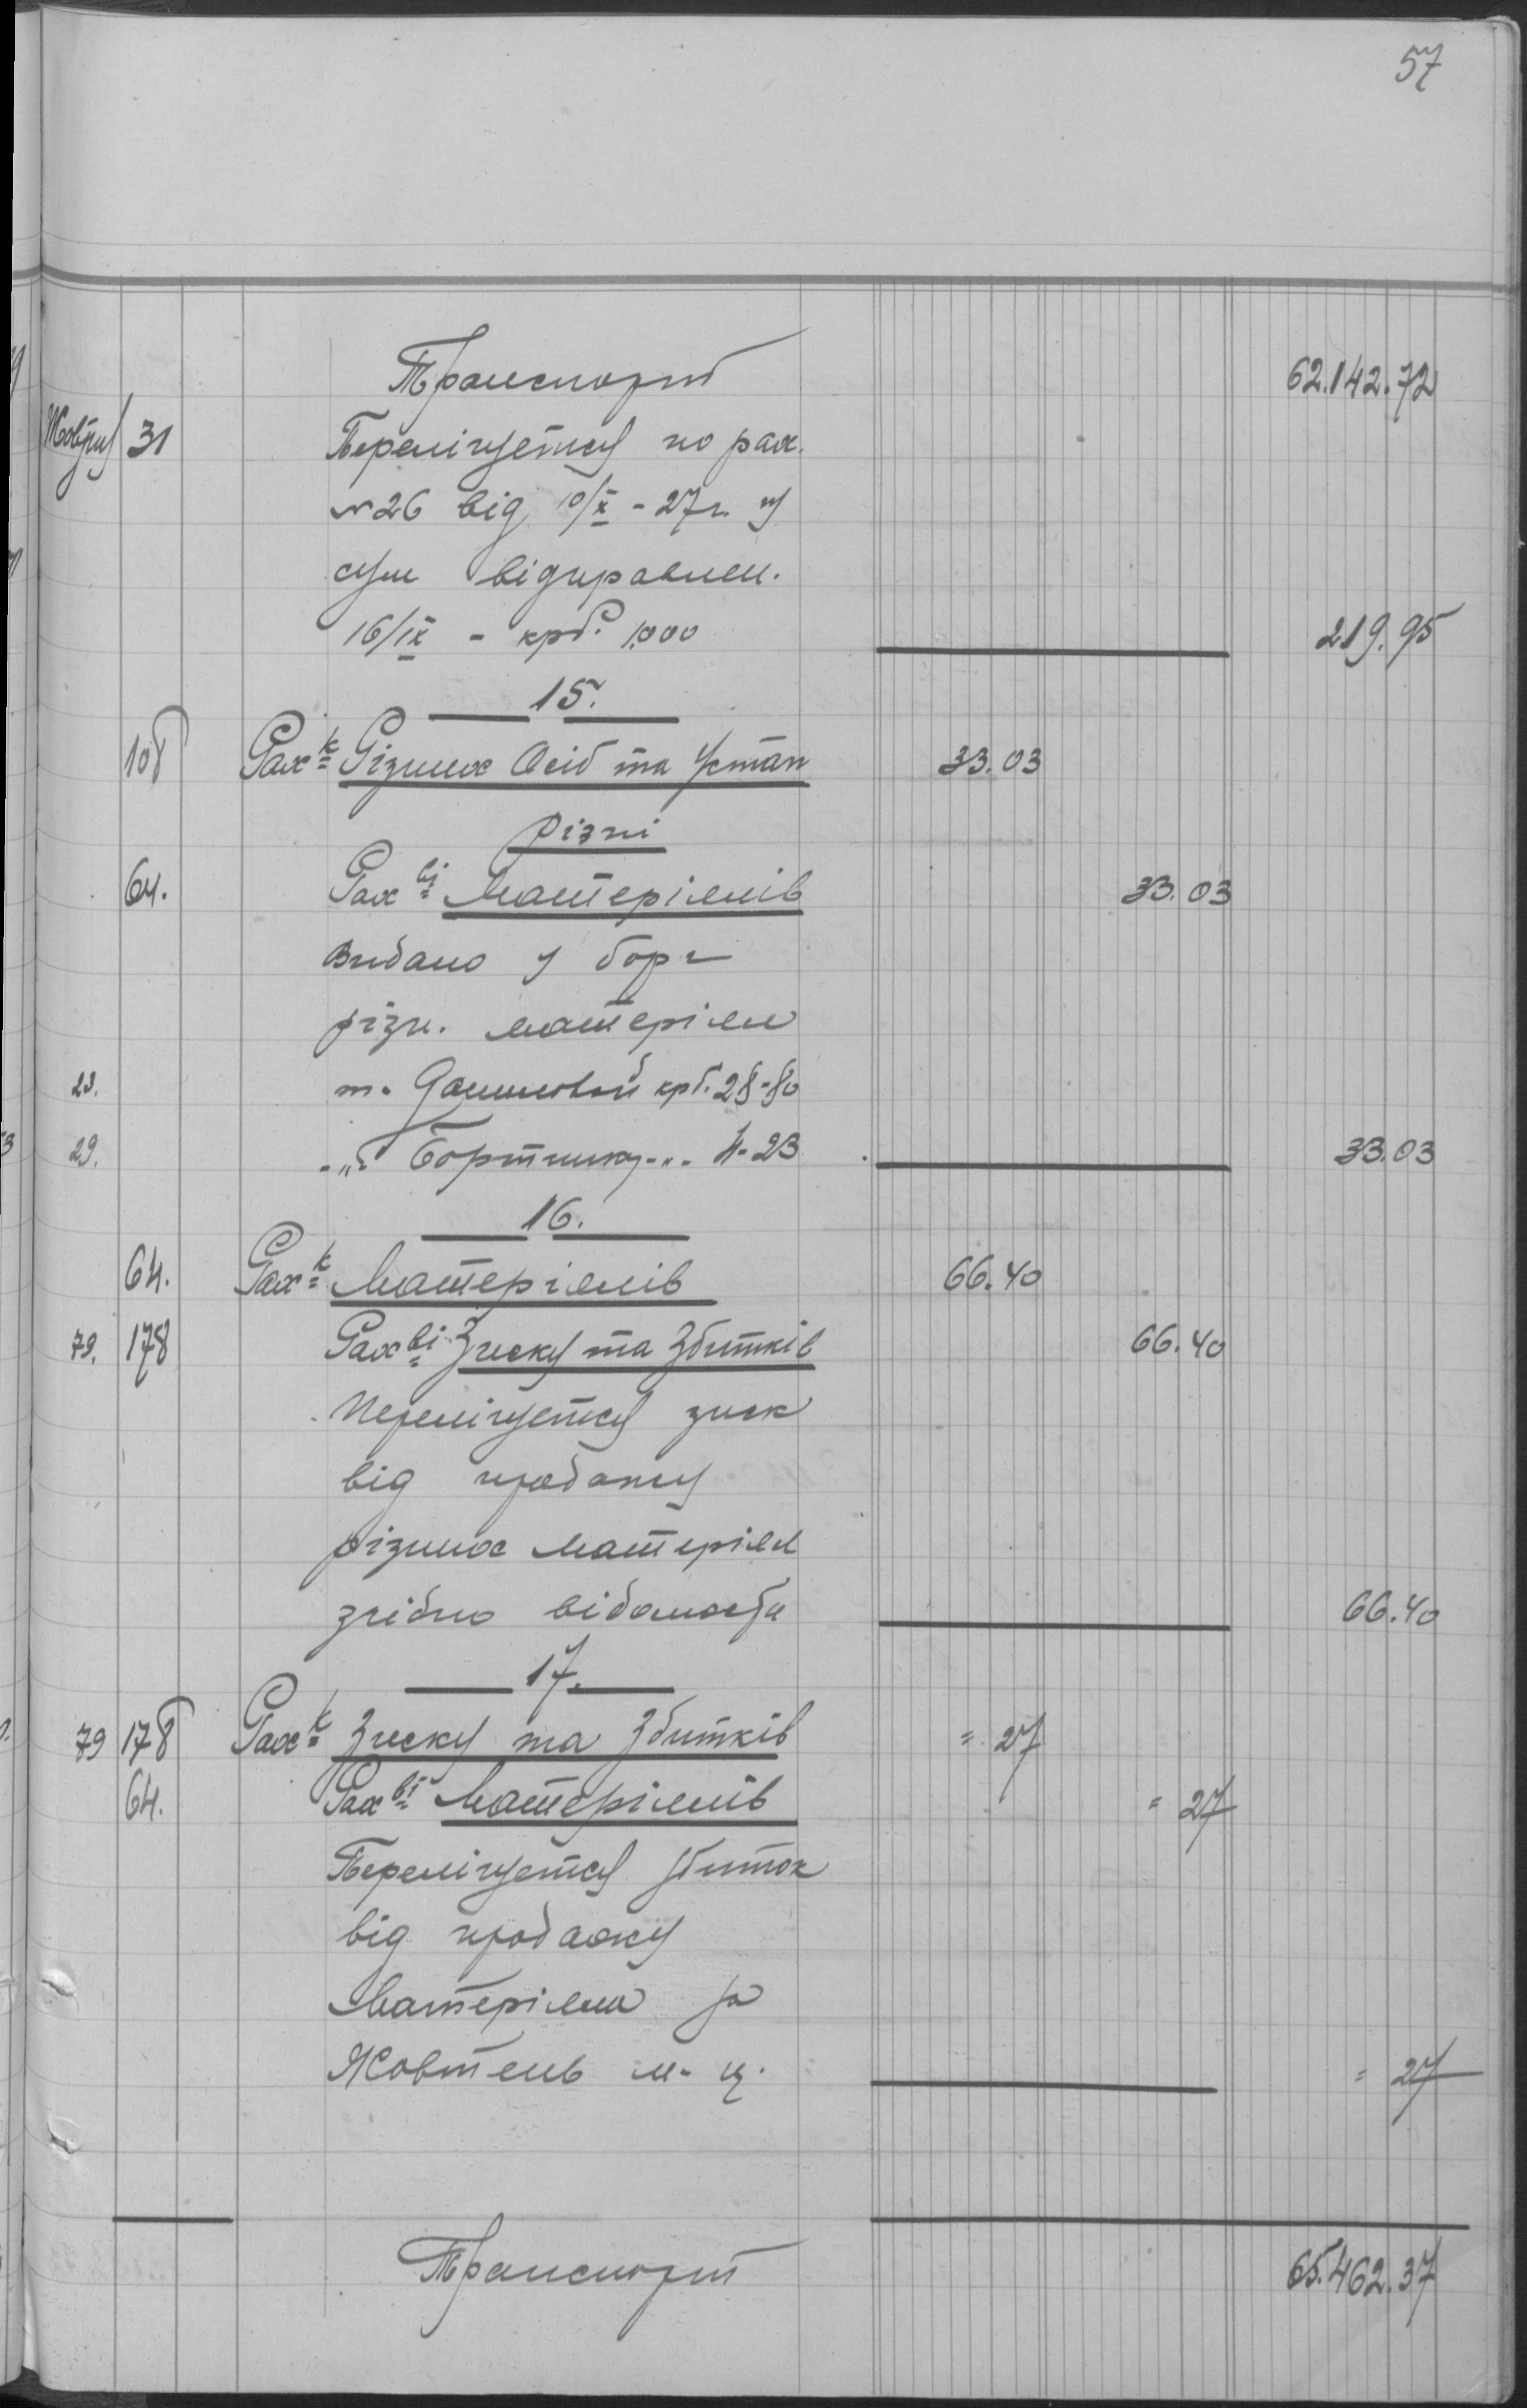 57
Транспорт 62.142.72
Жовтня 31 Перелічується по рах.
№ 26 від 10/X - 27 р. у
сум відправлен.
16/IX - крб. 1.000 219.95
15.
108 Рах-к Різних Осіб та Устан 33.03
Різні
64. Рах-ві Матеріялів 33.03
Видано у борг
різн. матеріяли
23. т. крб. 28-80
29. -"- Бортнику -"- 4-23 33.03
16.
64. Рах-к Матеріялів 66.40
79. 178 Рах-ві Зиску та Збитків 66.40
Перелічується зиск
від продажу
різних матеріял
згідно відомости 66.40
17.
79 178 Рах-к Зиску та Збитків = 27
64. Рах-ві Матеріялів = 27
Перелічується збиток
від продажу
Матеріяли за
Жовтень м-ц. = 27
Транспорт 65.462.37